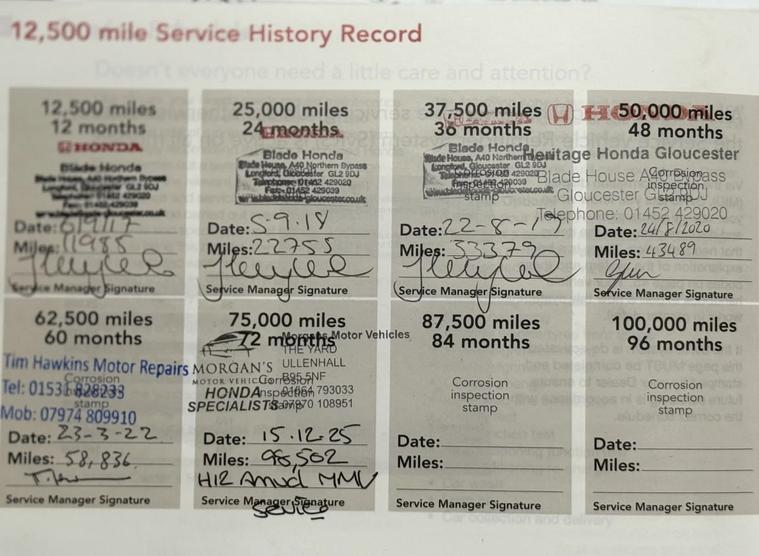 12,500 mile Service History Record
Doesn't everyone need a little care and attention?
12,500 miles
12 months
HONDA
Blade Honda
Blade House, A40 Northern Bypass
Longford, Gloucester GL2 9DJ
Telephone: 01452 429020
Fax: 01452 429039
Date: 6/9/17
Miles: 11985
Service Manager Signature
25,000 miles
24 months
Blade Honda
Blade House, A40 Northern Bypass
Longford, Gloucester GL2 9DJ
Telephone: 01452 429020
Fax: 01452 429039
Date: 5-9-18
Miles: 22755
Service Manager Signature
37,500 miles
36 months
Blade Honda
Blade House, A40 Northern
Longford, Gloucester GL2 9DJ
Corrosion
inspection
stamp
Date: 22-8-19
Miles: 33379
Service Manager Signature
HONDA
50,000 miles
48 months
Heritage Honda Gloucester
Blade House A40 Bypass
Gloucester GL2 9DJ
Telephone: 01452 429020
Corrosion
inspection
stamp
Date: 24/8/2020
Miles: 43489
Service Manager Signature
62,500 miles
60 months
Tim Hawkins Motor Repairs
Tel: 01531 828233
Mob: 07974 809910
Corrosion
stamp
Date: 23-3-22
Miles: 58,836
Service Manager Signature
75,000 miles
72 months
Morgans Motor Vehicles
THE YARD
ULLENHALL
B95 5NF
01564 793033
07970 108951
MORGAN'S
MOTOR VEHICLE
HONDA
SPECIALISTS
Corrosion
inspection
stamp
Date: 15.12.25
Miles: 96,502
H12 Annual MMV
Service Manager Signature
Service
87,500 miles
84 months
Corrosion
inspection
stamp
Date:
Miles:
Service Manager Signature
100,000 miles
96 months
Corrosion
inspection
stamp
Date:
Miles:
Service Manager Signature